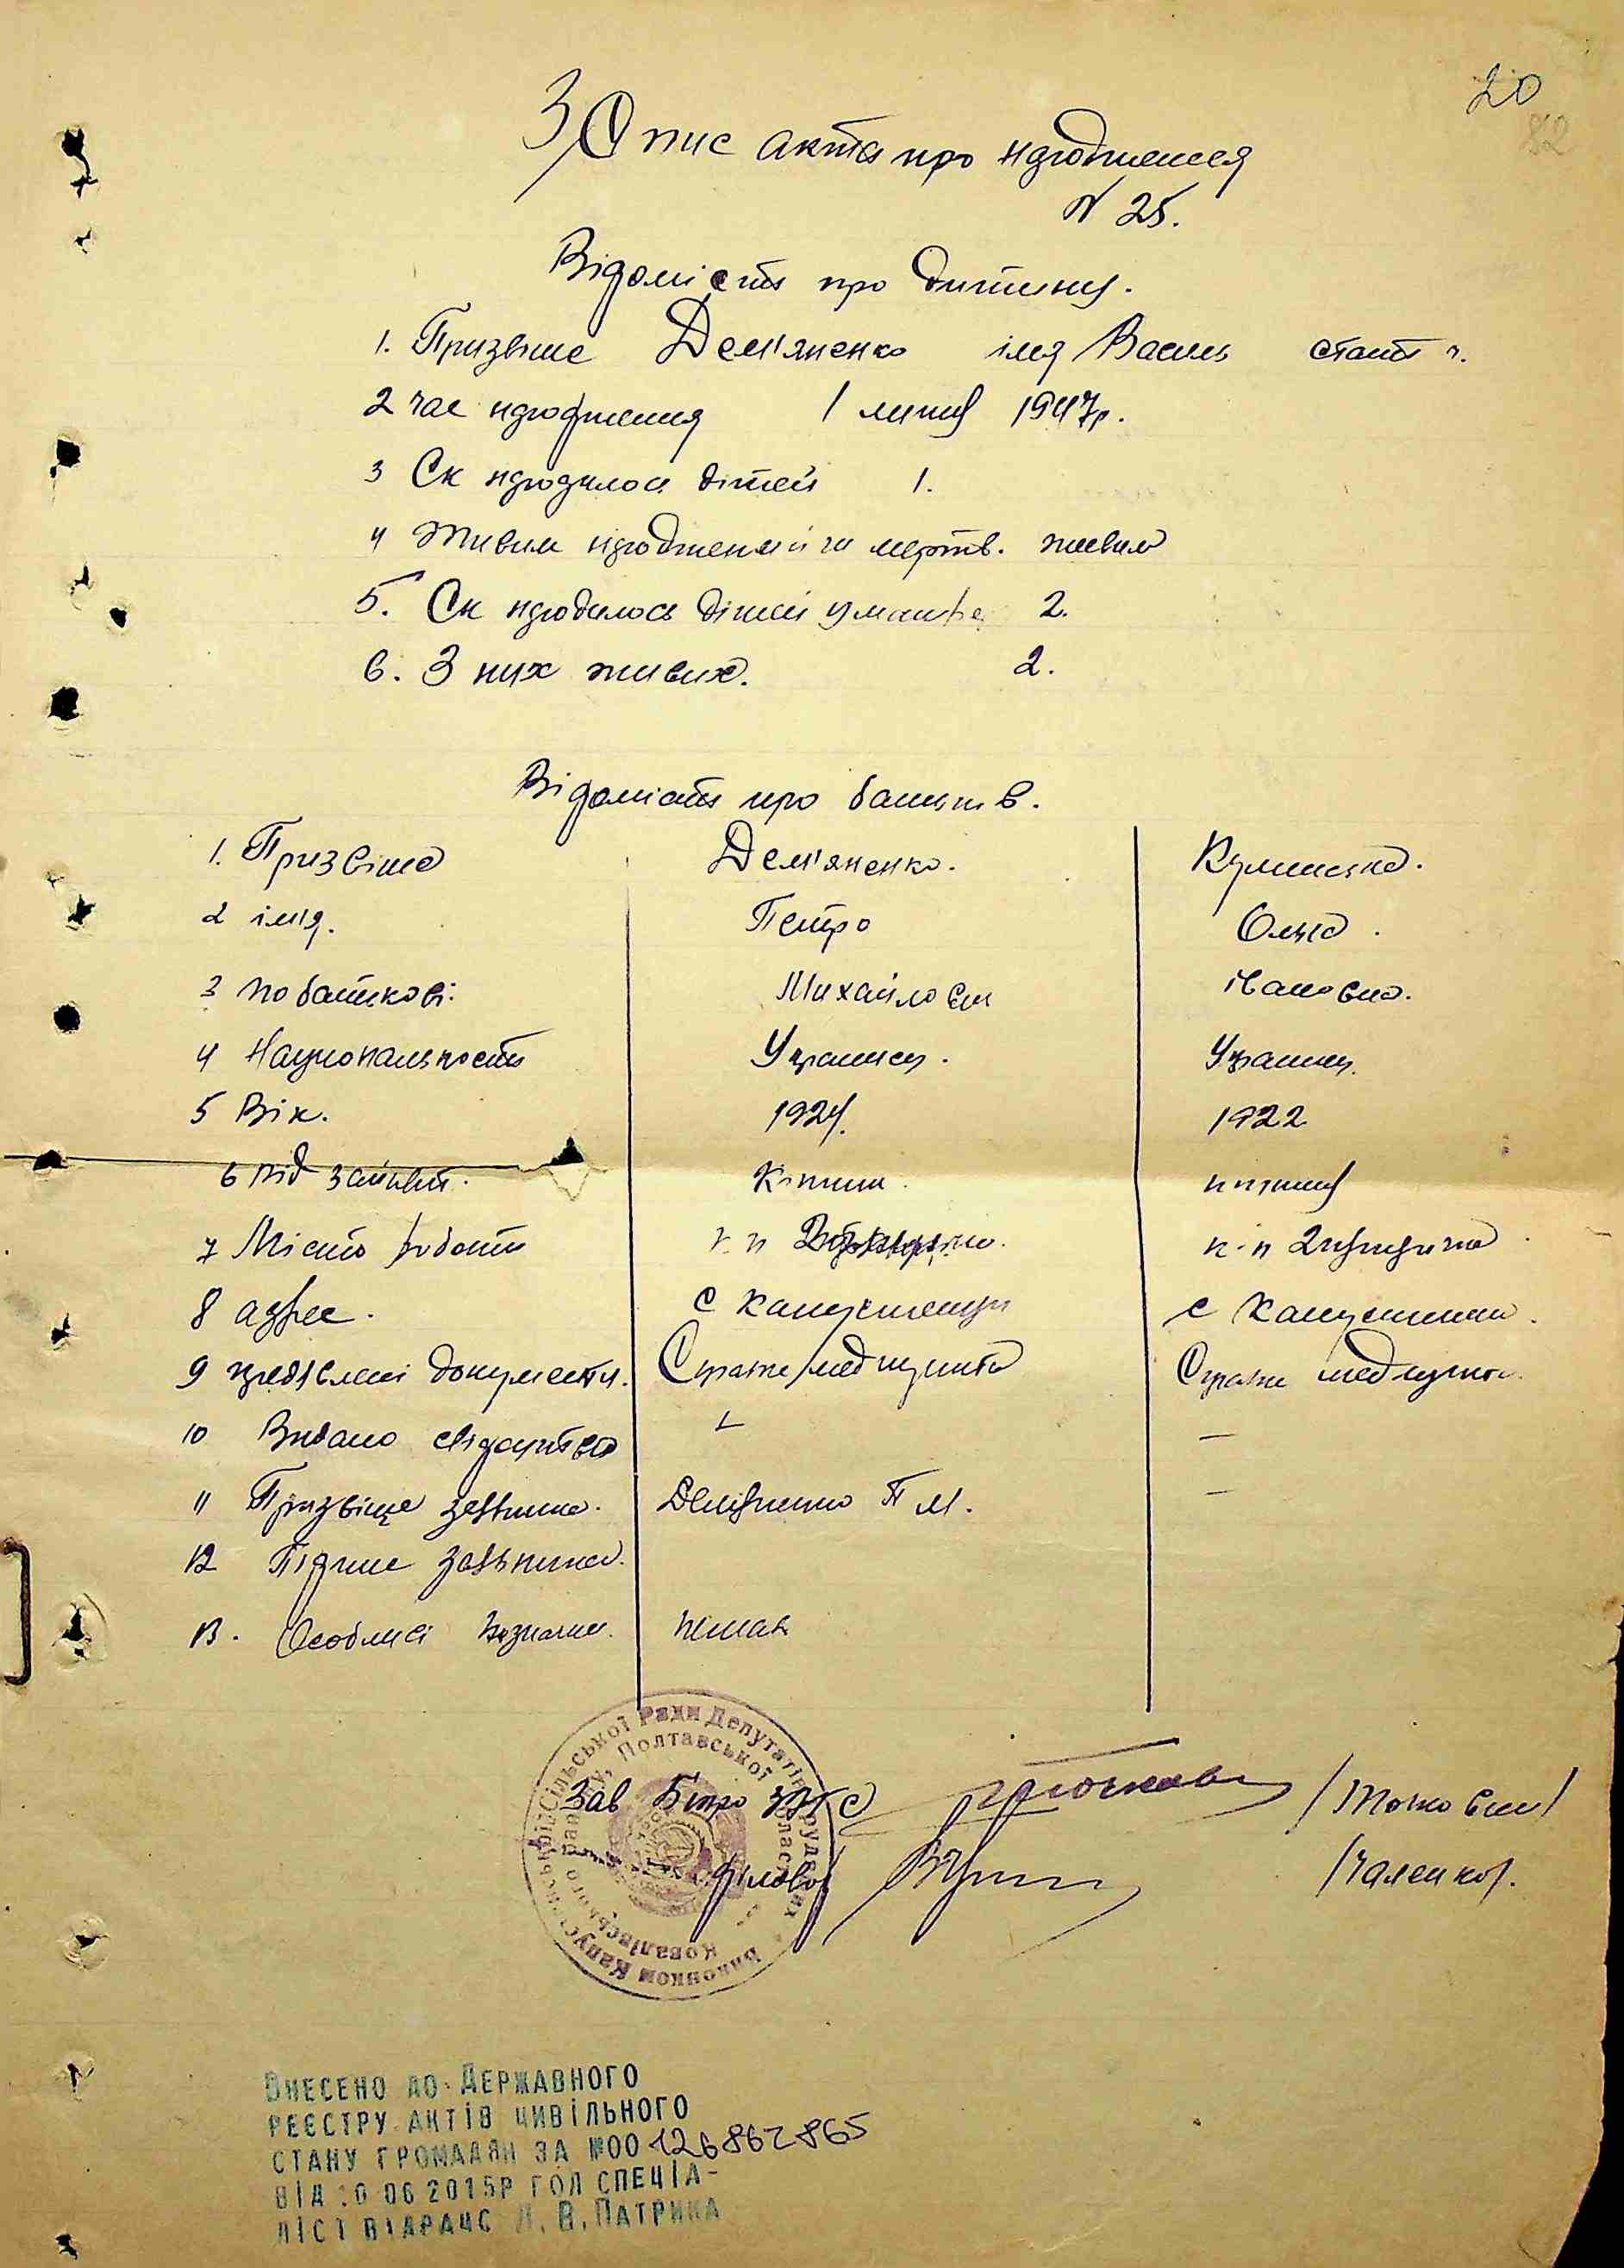 20
82
ЗОпис акта про народження
N 25.
Відомість про дитину.
1. Призвіще Дем'яненко імя Василь стать ч.
2 час народження 1 липня 1947р.
3 Ск народилося дітей 1.
4 Живим народжений чи мертв. живим
5. Ск народилось дітей у матері 2.
6. З них живих. 2.
Відомість про батьків.
1. Призвіще Дем'яненко.
2 імя. Петро Ольга.
3 по батькові. Михайлович Івановна.
4 Национальность Украинец. Украинц.
5 Вік. 1924. 1922
6 Від занят.
7 Місто роботи к-п к-п
8 адрес. с Капустинці с Капустинці.
9 предявлені документи. Справк медпункта Справк медпункта.
10 Видано свідоцтво – –
11 Призвіще заявника. Демяненко П М. –
12 Підпис заявника.
13. Особливі позначки. немає
Виконком Капустинської Сільської Ради Депутатів Трудящих
Ковалівського району, Полтавської області
Зав Бюро ЗАГС /Точковий/
Діловод /Чаленко/.
ВНЕСЕНО ДО ДЕРЖАВНОГО
РЕЄСТРУ АКТІВ ЦИВІЛЬНОГО
СТАНУ ГРОМАДЯН ЗА №00126862865
ВІД 10 06 2015Р ГОЛ СПЕЦІА-
ЛІСТ ВІДРАЦС Л. В. ПАТРИКА